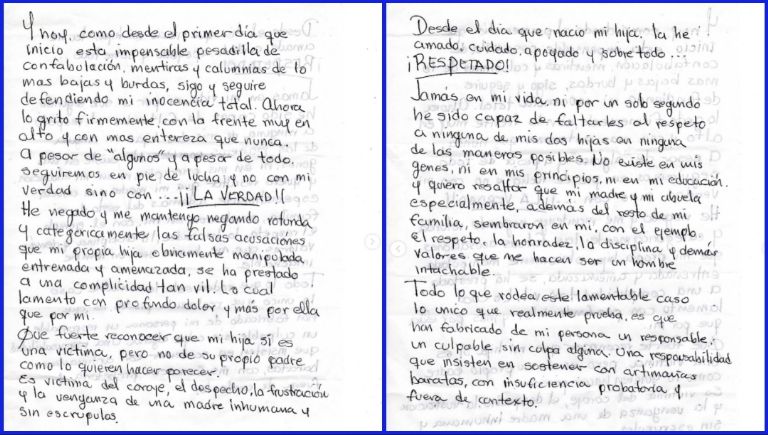 Y hoy, como desde el primer día que
inicio esta impensable pesadilla de
confabulación, mentiras y calumnias de lo
mas bajas y burdas, sigo y seguire
defendiendo mi inocencia total. Ahora
lo grito firmemente, con la frente muy en
alto y con mas entereza que nunca.
a pesar de "algunos" y a pesar de todo.
seguiremos en pie de lucha y no con mi
verdad sino con ...¡¡LA VERDAD!!
He negado y me mantengo negando rotunda
y categoricamente las falsas acusaciones
que mi propia hija obviamente manipulada
entrenada y amenazada, se ha prestado
a una complicidad tan vil. Lo cual
lamento con profundo dolor, y más por ella
que por mi.
Que fuerte reconocer que mi hija si es
una victima, pero no de su propio padre
como lo quieren hacer parecer.
Es victima del coraje, el despecho, la frustración
y la venganza de una madre inhumana y
sin escrupulos.
Desde el día que nacio mi hija, la he
amado, cuidado, apoyado y sobre todo...
¡RESPETADO!
Jamás en mi vida, ni por un solo segundo
he sido capaz de faltarles al respeto
a ninguna de mis dos hijas en ninguna
de las maneras posibles. No existe en mis
genes, ni en mis principios, ni en mi educación.
y quiero resaltar que mi madre y mi abuela
especialmente, además del resto de mi
familia, sembraron en mi, con el ejemplo.
el respeto, la honradez, la disciplina y demás
valores que me hacen ser un hombre
intachable.
Todo lo que rodea este lamentable caso
lo unico que realmente prueba, es que
han fabricado de mi persona un responsable,
un culpable sin culpa alguna. Una responsabilidad
que insisten en sostener con artimañas
baratas, con insuficiencia probatoria y
fuera de contexto.